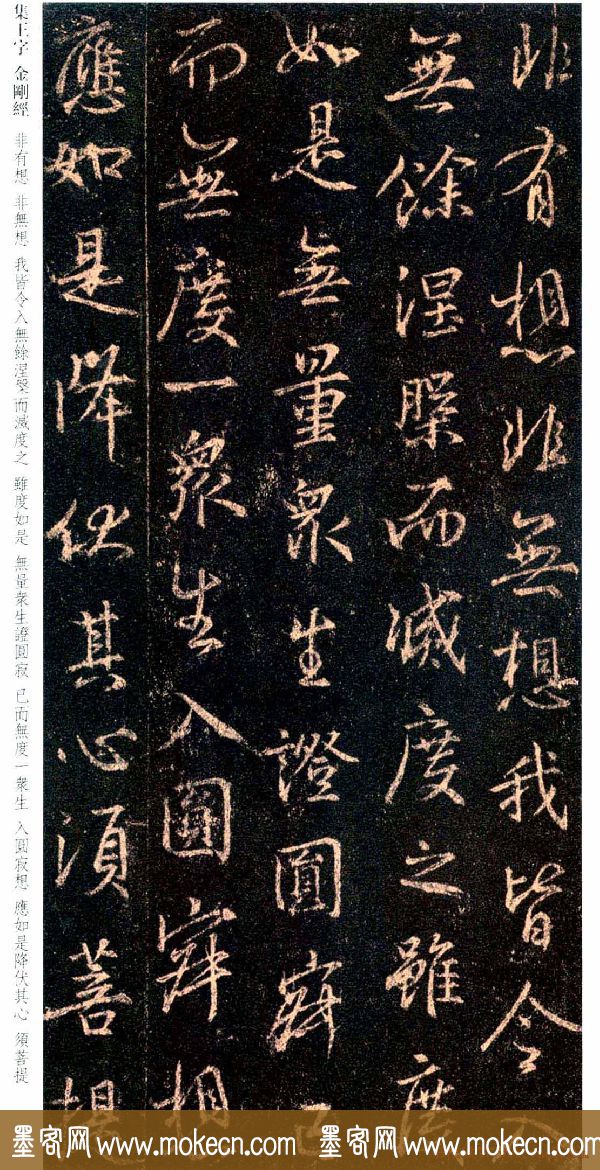 非有想非無想我皆令入
無餘涅槃而滅度之雖度
如是無量衆生證圓寂已
而無度一衆生入圓寂想
應如是降伏其心須菩提
集王字 金剛經 非有想 非無想 我皆令入無餘涅槃而滅度之 雖度如是 無量衆生證圓寂 已而無度一衆生 入圓寂想 應如是降伏其心 須菩提
墨客网 www.mokecn.com 墨客网 www.mokecn.com